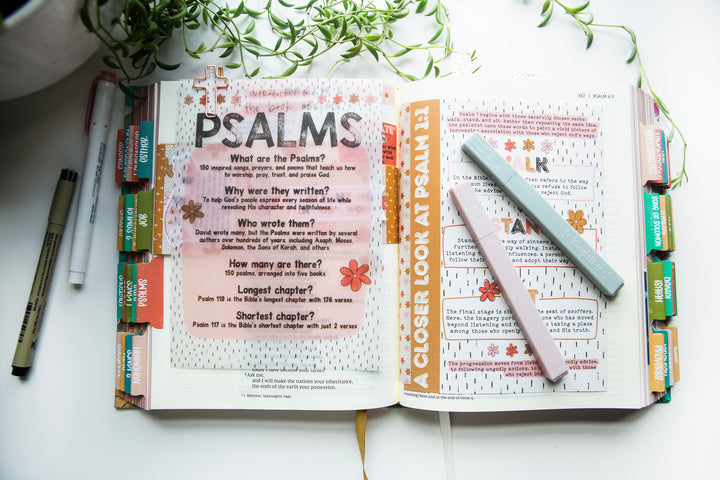 INTRODUCTION to
the book of
PSALMS
What are the Psalms?
150 inspired songs, prayers, and poems that teach us how
to worship, pray, trust, and praise God.
Why were they written?
To help God's people express every season of life while
revealing His character and faithfulness.
Who wrote them?
David wrote many, but the Psalms were written by several
authors over hundreds of years, including Asaph, Moses,
Solomon, the Sons of Korah, and others
How many are there?
150 psalms, arranged into five books
Longest chapter?
Psalm 119 is the Bible's longest chapter with 176 verses.
Shortest chapter?
Psalm 117 is the Bible's shortest chapter with just 2 verses.
Ask me,
and I will make the nations your inheritance,
the ends of the earth your possession.
Hebrew; Septuagint
ESTHER
JOB
PSALMS
617 | PSALM
A CLOSER LOOK AT PSALM 1:1
Psalm 1 begins with three carefully chosen verbs:
walk, stand, and sit. Rather than repeating the same idea,
the psalmist uses these words to paint a vivid picture of
increasing association with those who reject God's way.
WALK
In the Bible, often refers to the way
son lives refuse to follow
the advice reject God.
STAN
Standing way of sinners
further ply walking. Instead
listening influences, a person
follow their and adopt their way
The final stage is the seat of scoffers.
Here, the imagery one who has moved
beyond listening and to taking a place
among those who openly and His truth.
The progression moves from listen dly advice,
to following ungodly actions, to with those
who reject God.
and at the end of verse
SONG OF SOLOMON
ISAIAH
PROVERBS